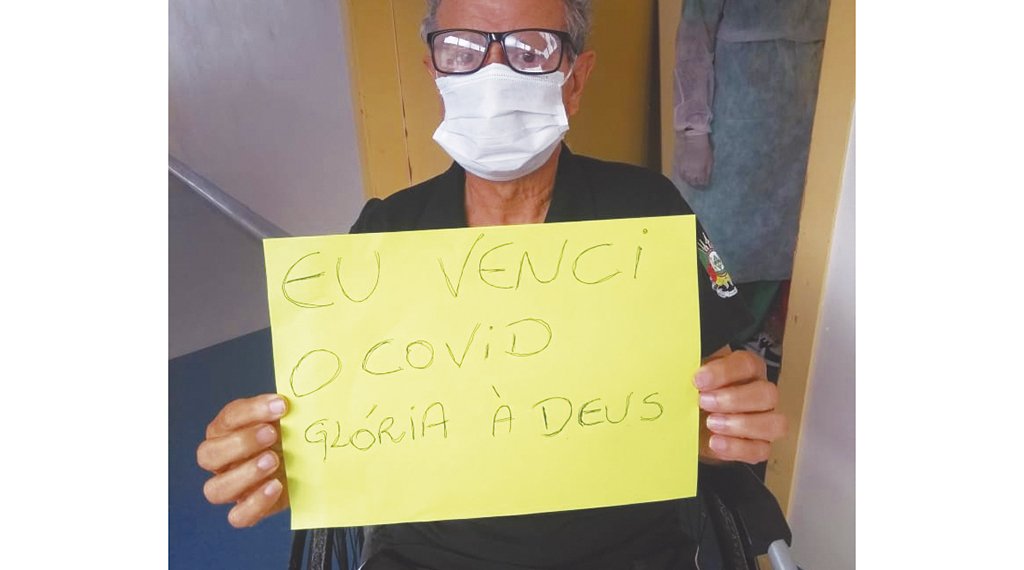 EU VENCi
O COViD
GLÓRiA À DEUS